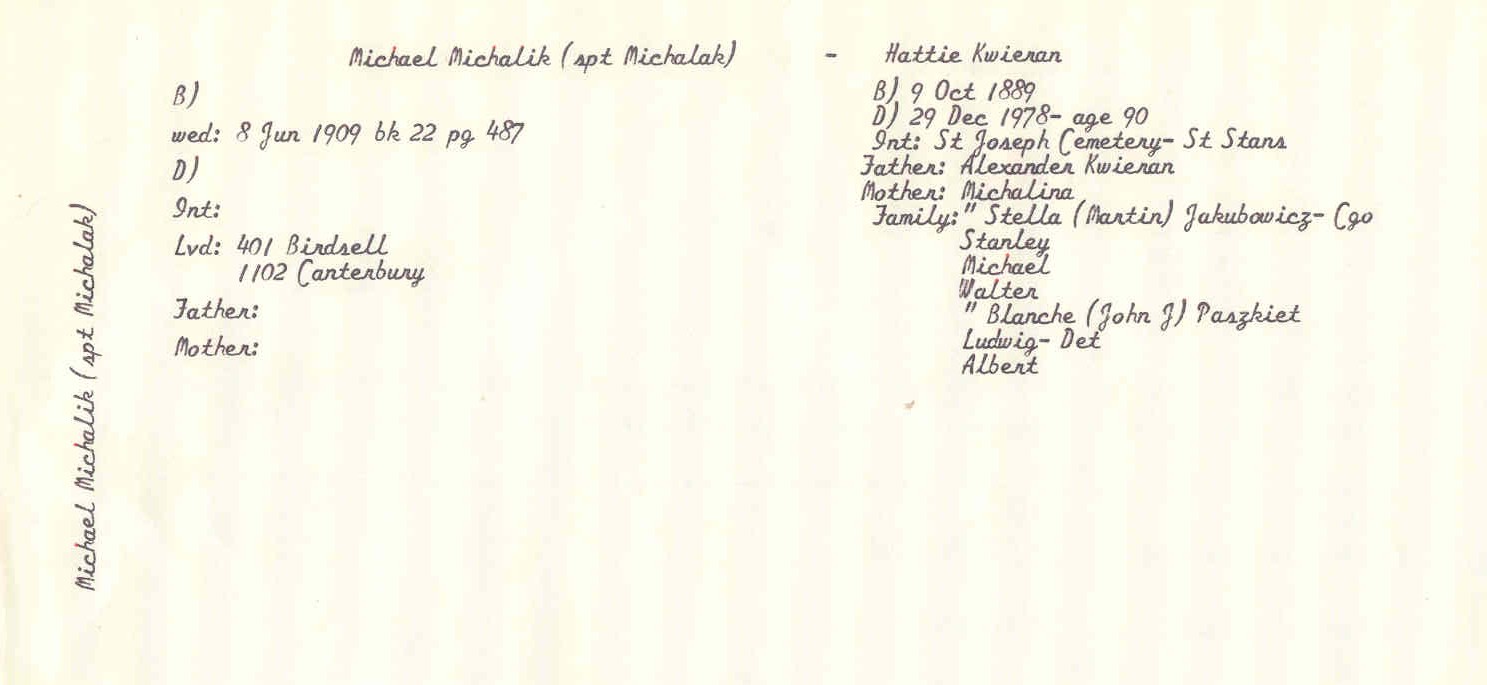 Michael Michalik (spt Michalak) - Hattie Kwieran
B)
wed: 8 Jun 1909 bk 22 pg 487
D)
Int:
Lvd: 401 Birdsell
1102 Canterbury
Father:
Mother:
B) 9 Oct 1889
D) 29 Dec 1978- age 90
Int: St Joseph Cemetery- St Stans
Father: Alexander Kwieran
Mother: Michalina
Family: " Stella (Martin) Jakubowicz- Cgo
Stanley
Michael
Walter
" Blanche (John J) Paszkiet
Ludwig- Det
Albert
Michael Michalik (spt Michalak)